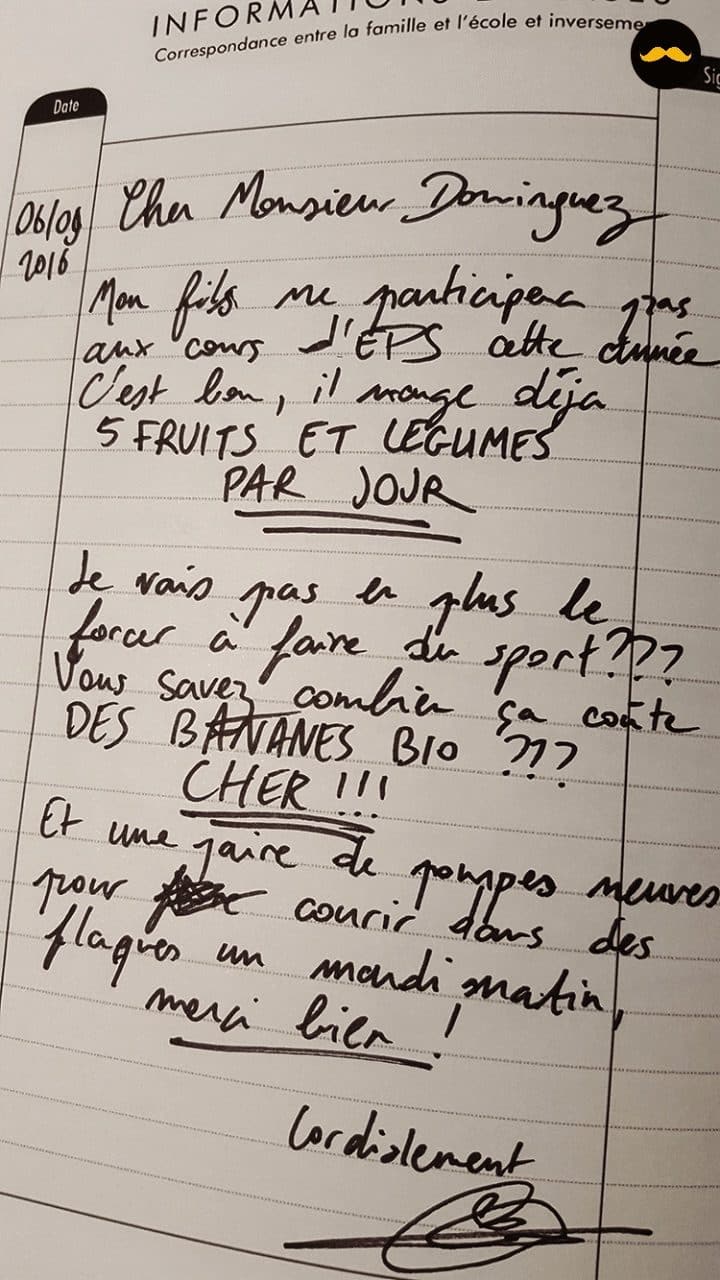 INFORMATIONS
Correspondance entre la famille et l'école et inverseme
Sig
Date
06/09
2016
Cher Monsieur Dominguez
Mon fils ne participera pas
aux cours d'EPS cette année
C'est bon, il mange déja
5 FRUITS ET LEGUMES
PAR JOUR
Je vais pas en plus le
forcer à faire du sport???
Vous savez combien ça coûte
DES BANANES BIO ???
CHER !!!
Et une paire de pompes neuves
pour courir dans des
flaques un mardi matin,
merci bien !
Cordialement